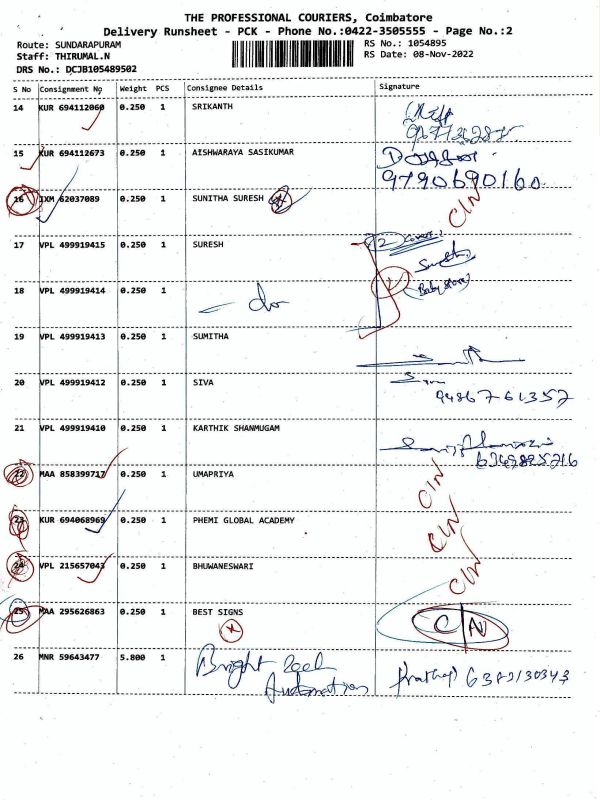 THE PROFESSIONAL COURIERS, Coimbatore
Delivery Runsheet - PCK - Phone No.:0422-3505555 - Page No.:2
Route: SUNDARAPURAM
Staff: THIRUMAL.N
DRS No.: DCJB105489502
RS No.: 1054895
RS Date: 08-Nov-2022
S No Consignment No Weight PCS Consignee Details Signature
14 KUR 694112060 0.250 1 SRIKANTH
15 KUR 694112673 0.250 1 AISHWARAYA SASIKUMAR
9790690160
16 IXM 62037089 0.250 1 SUNITHA SURESH C/N
17 VPL 499919415 0.250 1 SURESH 2 Covers
18 VPL 499919414 0.250 1 do
(Baby store)
19 VPL 499919413 0.250 1 SUMITHA
20 VPL 499919412 0.250 1 SIVA
9486761357
21 VPL 499919410 0.250 1 KARTHIK SHANMUGAM
22 MAA 858399717 0.250 1 UMAPRIYA C/N
23 KUR 694068969 0.250 1 PHEMI GLOBAL ACADEMY C/N
24 VPL 215657043 0.250 1 BHUWANESWARI C/N
25 MAA 295626863 0.250 1 BEST SIGNS C/N
26 MNR 59643477 5.800 1 Bright
Automation